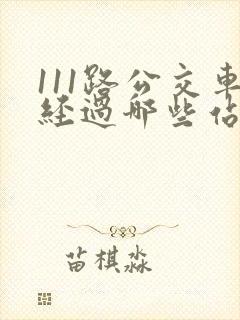 111路公交車
經過哪些佔
苗棋淼